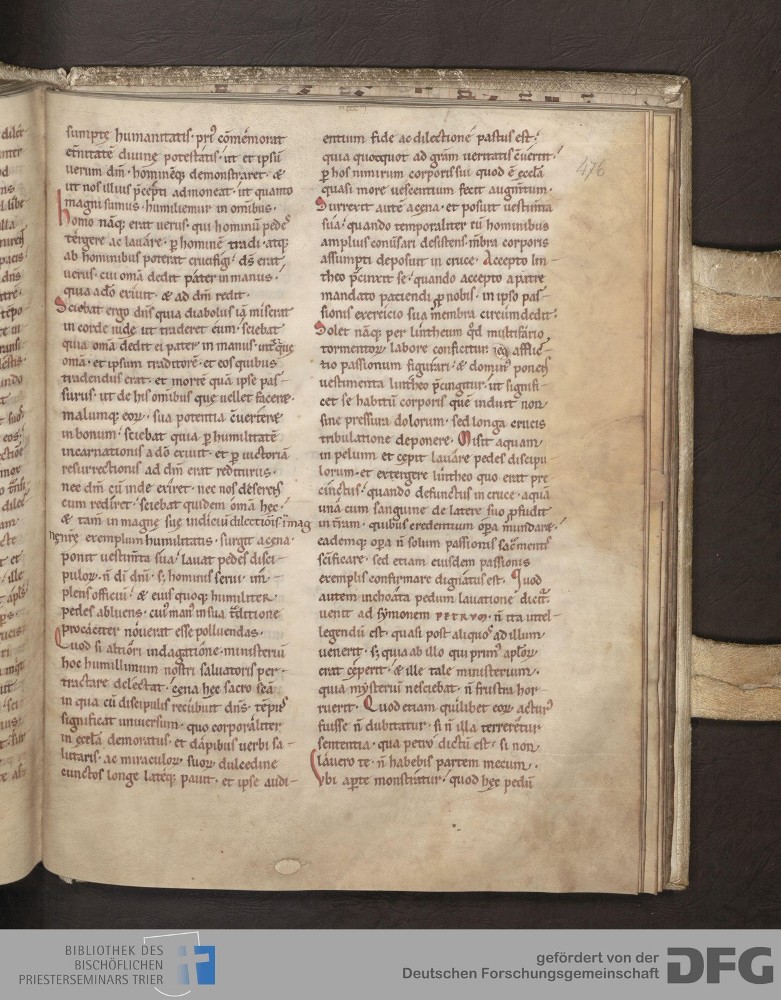 sumptę humanitatis · pri᷒ cōmemorat
et̄nitatē diuinę potestatis · ut et ipsū
uerum dm̄ · hominēq; demonstraret · &
ut nos illius p̄cepti admoneat · ut quanto
magni sumus · humiliemur in omnibus ·
homo nāq; erat uerus · qui hominū pedes
tergere ac lauare · ꝑ hominē tradi · atq;
ab hominibus poterat crucifigi · ds̄ erat
uerus · cui omā dedit pater in manus ·
quia a dō exiuit · & ad dm̄ redit ·
Sciebat ergo dn̄s quia diabolus iā miserat
in corde iudę ut traderet eum · sciebat
quia omā dedit ei pater in manus · utrūque
omā · et ipsum traditorē · et eos quibus
tradendus erat · et mortē quā ipse pas-
surus · ut de his omibus quę uellet facere ·
malumque eoꝝ · sua potentia c̄uertere
in bonum · sciebat quia ꝑ humilitatē
incarnationis a dō exiuit · et ꝑ uictoriā
resurrectionis ad dm̄ erat rediturus ·
nec dm̄ cū inde exiret · nec nos deserens
cum rediret · sciebat quidem omā hęc ·
& tam in magnę suę indiciū dilectionis · quā mag
nęnrę exemplum humilitatis · surgit a cęna ·
ponit uestim̄ta sua · lauat pedes disci-
puloꝝ · n̄ di dn̄i · s; hominis serui · im-
plens officiū · & eius quoq; humiliter
pedes abluens · cui᷒ man᷒ in sua t̄ditione
procaciter nouerat esse polluendas ·
Quod si altiori indagatione · ministeriū
hoc humillimum nostri saluatoris per-
tractare delectat · cęna hęc sacrosc̄a
in qua cū discipulis recubuit dn̄s · temp᷒
significat uniuersum · quo corporaliter
in ęcc̄la demoratus · et dapibus uerbi sa-
lutaris · ac miraculoꝝ suoꝝ dulcedine
cunctos longe lateq; pauit · et ipse audi-
entium fide ac dilectione pastus est ·
quia quotquot ad grām ueritatis c̄uertit ·
ꝑ hos nimirum corporis sui quod ē ęcc̄la
quasi more uescentium fecit augm̄tum ·
Surrexit autē a cęna · et posuit uestim̄ta
sua · quando temporaliter cū hominibus
amplius conu̅sari desistens · m̄bra corporis
assumpti deposuit in cruce · Accepto lin-
theo p̄cinxit se · quando accepto a patre
mandato patiendi ꝓ nobis · in ipso pas-
sionis exercicio sua membra circūm dedit ·
Solet nāq; per lintheum qđ multifario
tormentoꝝ labore conficitur afflic-
tio passionum figurari · & domin᷒ positis
uestimentis lintheo p̄cingitur · ut signifi-
cet se habitū corporis quē induit non
sine pressura dolorum · sed longa crucis
tribulatione deponere · Misit aquam
in peluim et cępit lauare pedes discipu-
lorum · et extergere lintheo quo erat pre
cinctus · quando defunctus in cruce · aquā
unā cum sanguine de latere suo p̄fudit
in t̄ram · quibus credentium oꝑa mundaret ·
eademq; oꝑa n̄ solum passionis sac̄mentis
sc̄ificare · sed etiam eiusdem passionis
exemplis confirmare dignatus est · Quod
autem inchoata pedum lauatione dicit̄ ·
uenit ad symonem PETRUM · n̄ ita intel-
legendū est · quasi post aliquos ad illum
uenerit · s; quia ab illo qui prim᷒ aploꝝ
erat cęperit · & ille tale ministerium ·
quia mysteriū nesciebat · n̄ frustra hor-
ruerit · Quod etiam quilibet eoꝝ actur᷒
fuisse n̄ dubitatur · si n̄ illa terreretur
sententia · qua petro dictū est · si non
lauero te · n̄ habebis partem mecum ·
Vbi aꝑte monstratur · quod hęc pedū
476
BIBLIOTHEK DES
BISCHÖFLICHEN
PRIESTERSEMINARS TRIER
gefördert von der
Deutschen Forschungsgemeinschaft
DFG